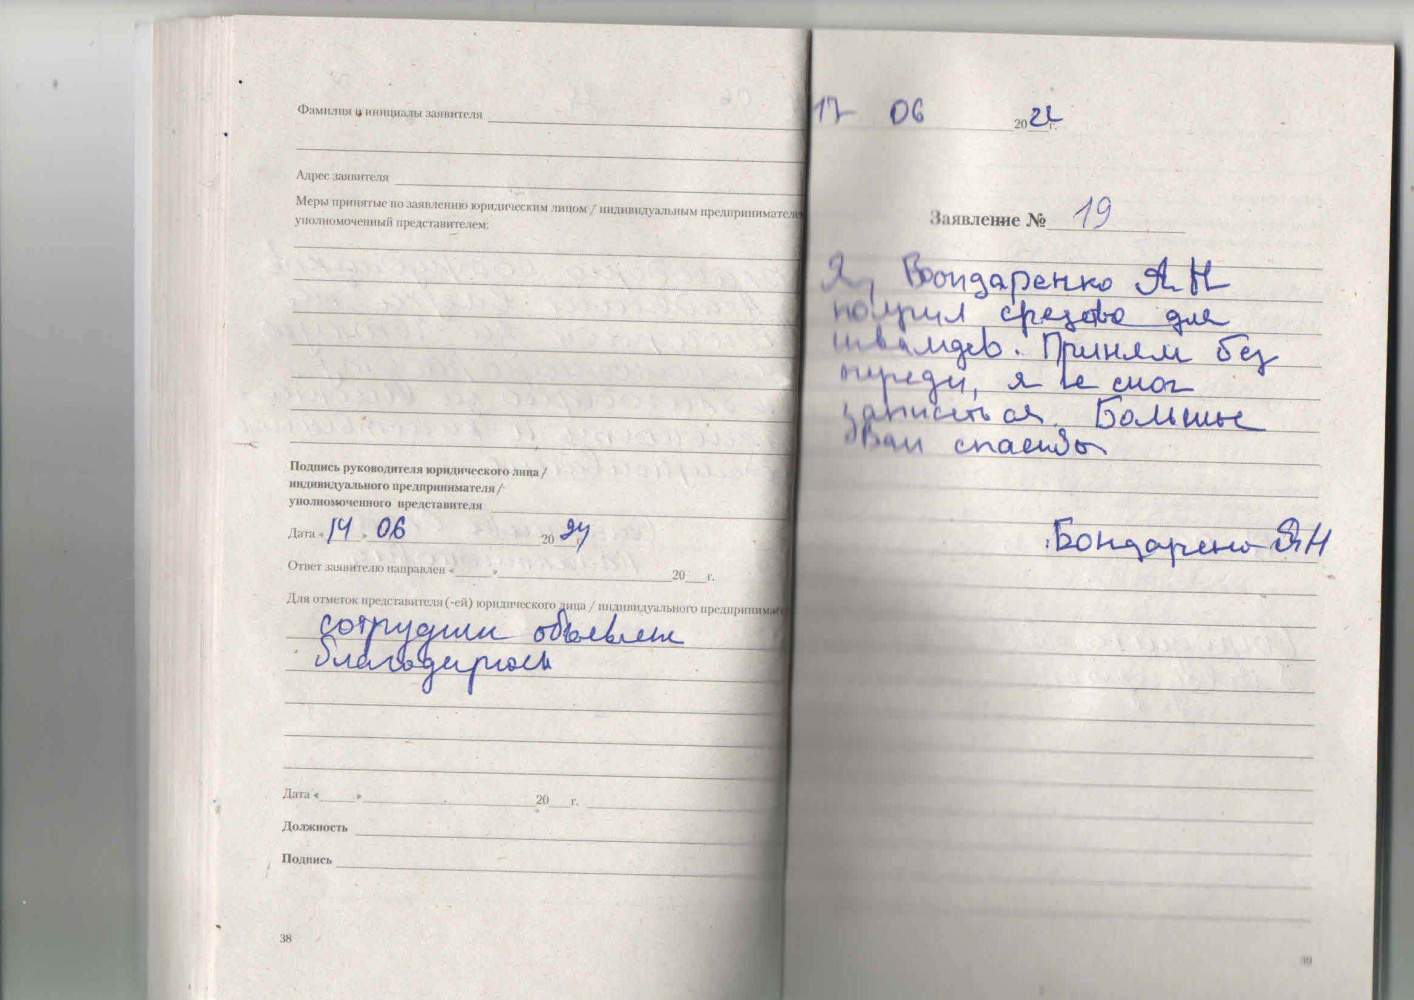 Фамилия и инициалы заявителя
Адрес заявителя
Меры принятые по заявлению юридическим лицом / индивидуальным предпринимателем
уполномоченный представителем:
Подпись руководителя юридического лица /
индивидуального предпринимателя /
уполномоченного представителя
Дата « 14 » 06 20 24 г.
Ответ заявителю направлен « » 20 г.
Для отметок представителя (-ей) юридического лица / индивидуального предпринимат
сотрудники объявлена
благодарность
Дата « » 20 г.
Должность
Подпись
38
17 06 20 24 г.
Заявление № 19
Я, Бондаренко ЯН
получил средства для
инвалидов. Приняли без
очереди, я не смог
записаться. Большое
Вам спасибо
Бондаренко ЯН
39